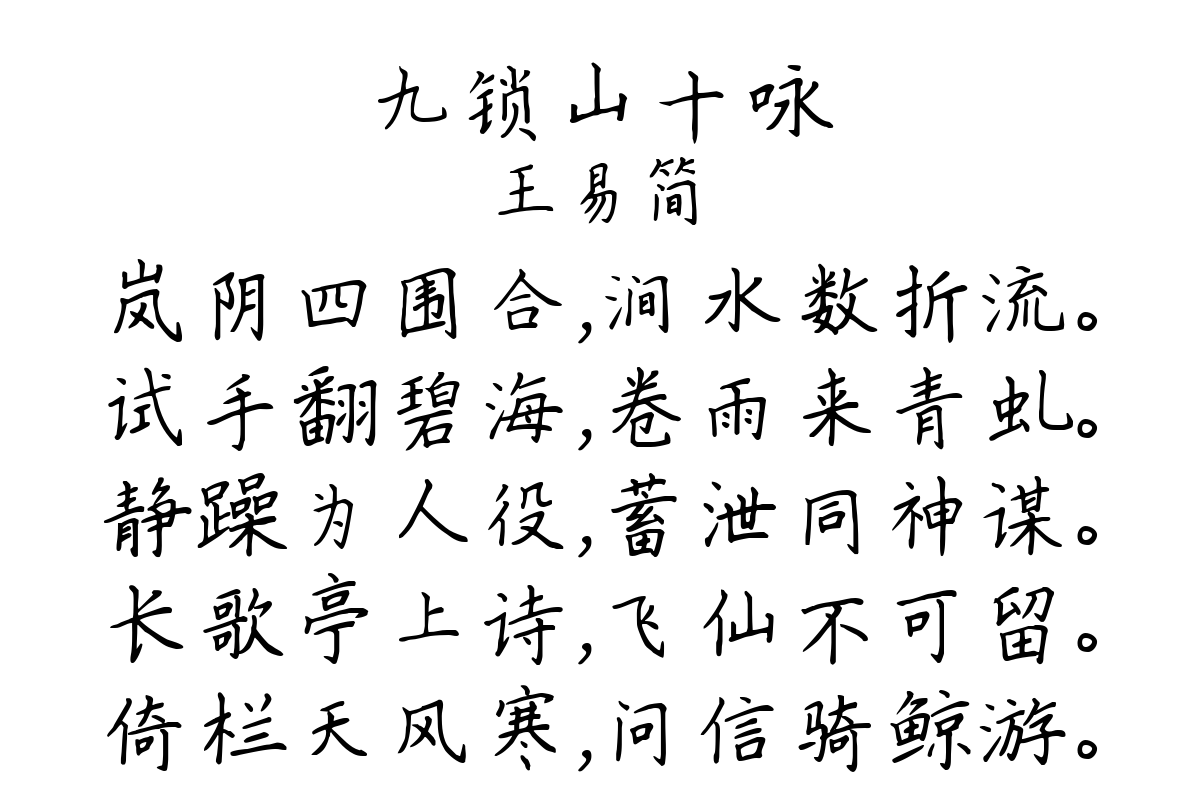 九锁山十咏
王易简
岚阴四围合,涧水数折流。
试手翻碧海,卷雨来青虬。
静躁为人役,蓄泄同神谋。
长歌亭上诗,飞仙不可留。
倚栏天风寒,问信骑鲸游。